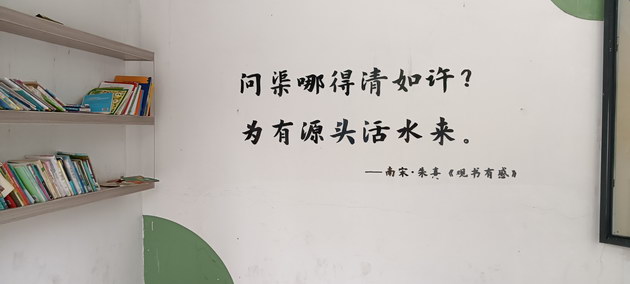 问渠哪得清如许?
为有源头活水来。
——南宋·朱熹《观书有感》